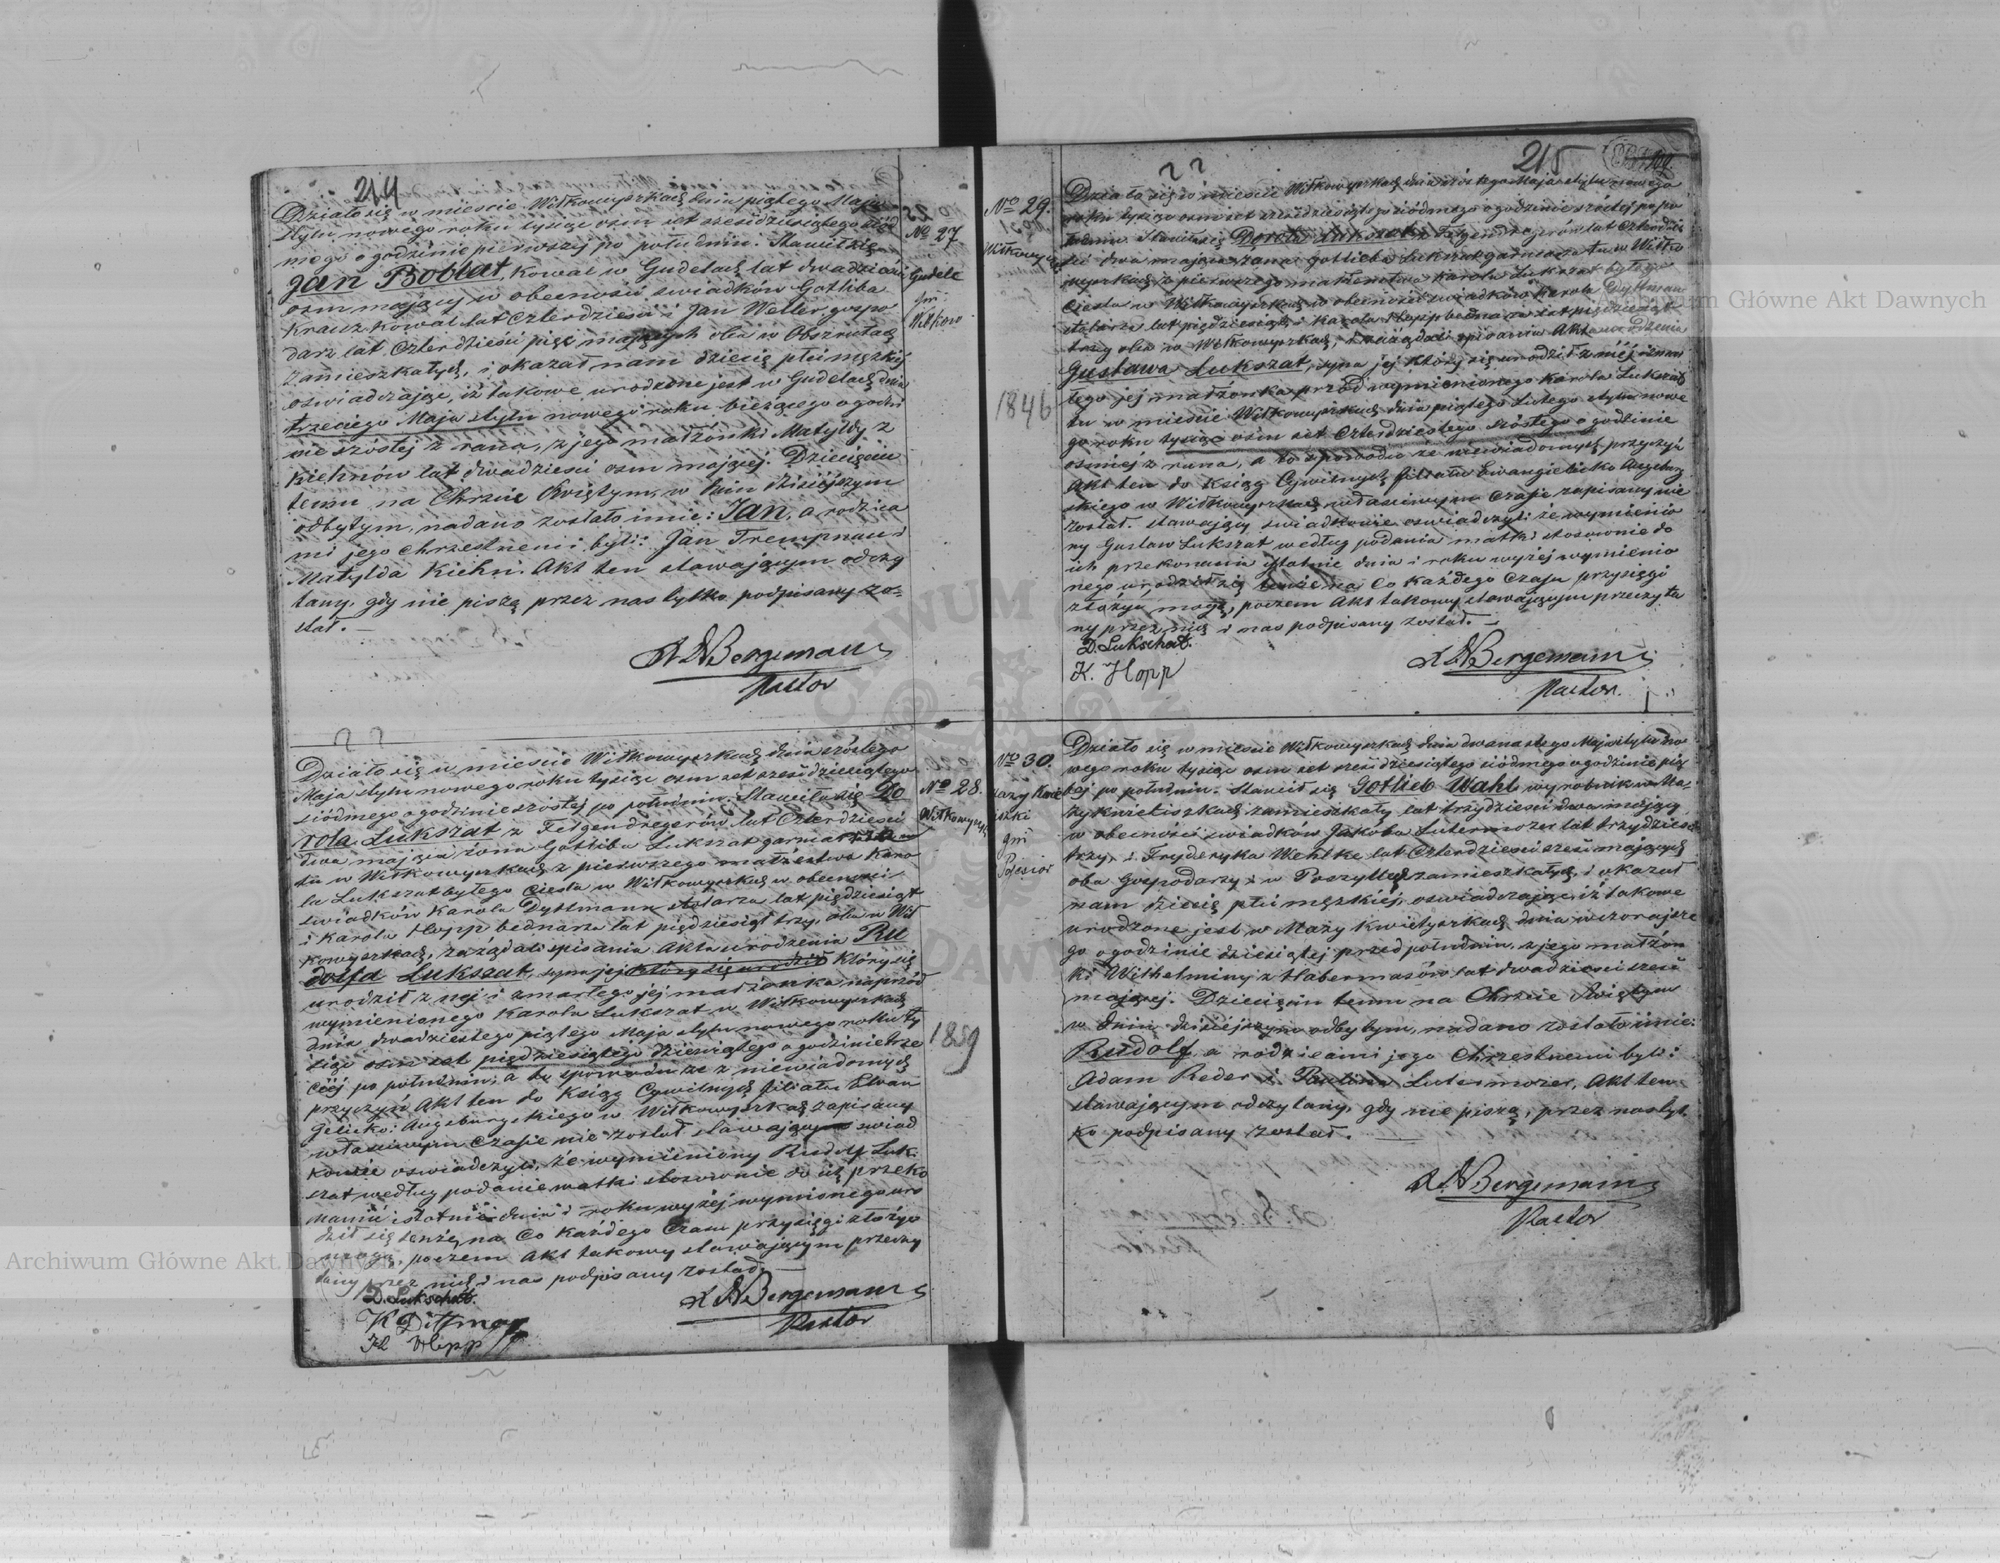 244
Działo się w mieście Wiłkowyszkach dnia piątego Maja
stylu nowego roku tysiąc osm set sześdziesiątego siód
mego o godzinie pierwszej po południu. Stawił się
Jan Boblat, kowal w Gudelach lat dwadzieścia
osm mający w obecności swiadków Gotliba
Krauz kowal lat czterdzieści i Jan Weller gospo
darz lat czterdzieści pięć mających oba w
zamieszkałych, i okazał nam dziecię płci męzkiej
oswiadczając, iż takowe urodzone jest w Gudelach dnia
trzeciego Maja stylu nowego roku bieżącego o godzi
nie szóstej z rana, z jego małżonki Matyldy z
Kiehnów lat dwadzieści osm mającej. Dziecięciu
temu na Chrzcie Świętym, w dniu dzisiejszym
odbytym, nadano zostało imie: Jan, a rodzica
mi jego chrzestnemi byli: Jan Trempnau i
Matylda Kiehn. Akt ten stawającym odczy
tany, gdy nie piszą przez nas tylko podpisany zo=
stał. —
Bergemann
Pastor
No 27
Gudele
gm:
Wiłkow
? ?
Działo się w mieście Wiłkowyszkach dnia szóstego
Maja stylu nowego roku tysiąc osm set sześdziesiątego
siódmego o godzinie szóstej po południu. Stawiła się Do
rota Lukszat z Felgendregerów lat czterdzieści
dwa mająca żona Gotliba Lukszat garnarza
tu w Wiłkowyszkach z pierwszego małżeństwa Karo
la Lukszat byłego Cieśla w Wiłkowyszkach w obecności
swiadków Karola Dyttmann stolarza lat pięćdziesiąt
i Karola Hopp bednarza lat pięćdziesiąt trzy, oba w Wił
kowyszkach, zażądali spisania Akta urodzenia Ru
dolfa Lukszat, syna jej który się urodził który się
urodził z niej i zmarłego jej małżonka naprzód
wymienionego Karola Lukszat w Wiłkowyszkach
dnia dwadziestego piątego Maja stylu nowego roku ty
siąc osm set pięćdziesiątego dziewiątego o godzinie trze
ciej po południu, a to z powodu że z niewiadomych
przyczyn Akt ten do Ksiąg Cywilnych filiału Ewan
gelicko: Augsburgskiego w Wiłkowyszkach zapisany
właściwym czasie nie został stawający swiad
kowie oswiadczyli, że wymieniony Rudolf Luk
szat według podanie matki stosownie do ich przeko
nania istotnie dnia i roku wyżej wymionego uro
dził się tenże, na Co każdego Czasu przysięgi złożyć
mogą, poczem Akt takowy stawającym przeczy
tany przez nich i nas podpisany został. —
D. Lukschat.
K Dittman
K Hopp
Bergemann
Pastor
No 28.
Wiłkowyszk
1859
? ?
215
No 29.
Wiłkowysz
1846
Działo się w mieście Wiłkowyszkach dnia szóstego Maja stylu nowego
roku tysiąc osm set sześdziesiątego siódmego o godzinie szóstej po po
łudniu. Stawiła się Dorota Lukszat z Felgendregerów lat czterdzie
ści dwa mająca żona Gotliba Lukszat garnarza tu w Wiłko
wyszkach z pierwszego małżeństwa Karola Lukszat byłego
Cieśla w Wiłkowyszkach w obecności swiadków Karola Dyttman
stolarza lat pięćdziesiąt i Karola Hopp bednarza lat pięćdziesiąt
trzy oba w Wiłkowyszkach, zażądali spisania Akta urodzenia
Gustawa Lukszat, syna jej który się urodził z niej i zmar
łego jej małżonka przód wymienionego Karola Lukszat
tu w mieście Wiłkowyszkach dnia piątego Lutego stylu nowe
go roku tysiąc osm set czterdziestego szóstego o godzinie
osmiej z rana, a to z powodu ze niewiadomych przyczyn
Akt ten do Ksiąg Cywilnych filiału Ewangielicko Augsburg
skiego w Wiłkowyszkach właściwym czasie zapisany nie
został. stawający swiadkowie oswiadczyli że wymienio
ny Gustaw Lukszat według podania matki stosownie do
ich przekonania istotnie dnia i roku wyżej wymienio
nego urodził się tenże na Co każdego Czasu przysięgi
złożyć mogą, poczem Akt takowy stawającym przeczyta
ny przez nich i nas podpisany został. —
D. Lukschat.
K. Hopp
Bergemann
Pastor.
No 30.
Mazy Kwie
iszki
gm
Pojesior
Działo się w mieście Wiłkowyszkach dnia dwunastego Maja stylu no
wego roku tysiąc osm set sześdziesiątego siódmego o godzinie pią
tej po południu. Stawił się Gotlieb Wahl wyrobnik w Ma=
zykwietiszkach zamieszkały lat trzydzieści dwa mający
w obecności swiadków Jakóba Lutermozer lat trzydzieści
trzy, i Fryderyka Wehlke lat czterdzieści sześć mających
oba Gospodarzy w zamieszkałych, i okazał
nam dziecię płci męzkiej, oswiadczając, iż takowe
urodzone jest w Mazy Kwietyszkach dnia wczorajsze
go o godzinie dziesiątej przed południu, z jego małżon
ki Wilhelminy z Habermasów lat dwadzieścia sześć
mającej. Dziecięciu temu na Chrzcie Świętym
w dniu dzisiejszym odbytym, nadano zostało imie:
Rudolf, a rodzicami jego Chrzestnemi byli:
Adam Reder i Paulina Lutermozer. Akt ten
stawającym odczytany, gdy nie piszą, przez nas tyl
ko podpisany został. —
Bergemann
Pastor
Archiwum Główne Akt Dawnych
Archiwum Główne Akt Dawnych